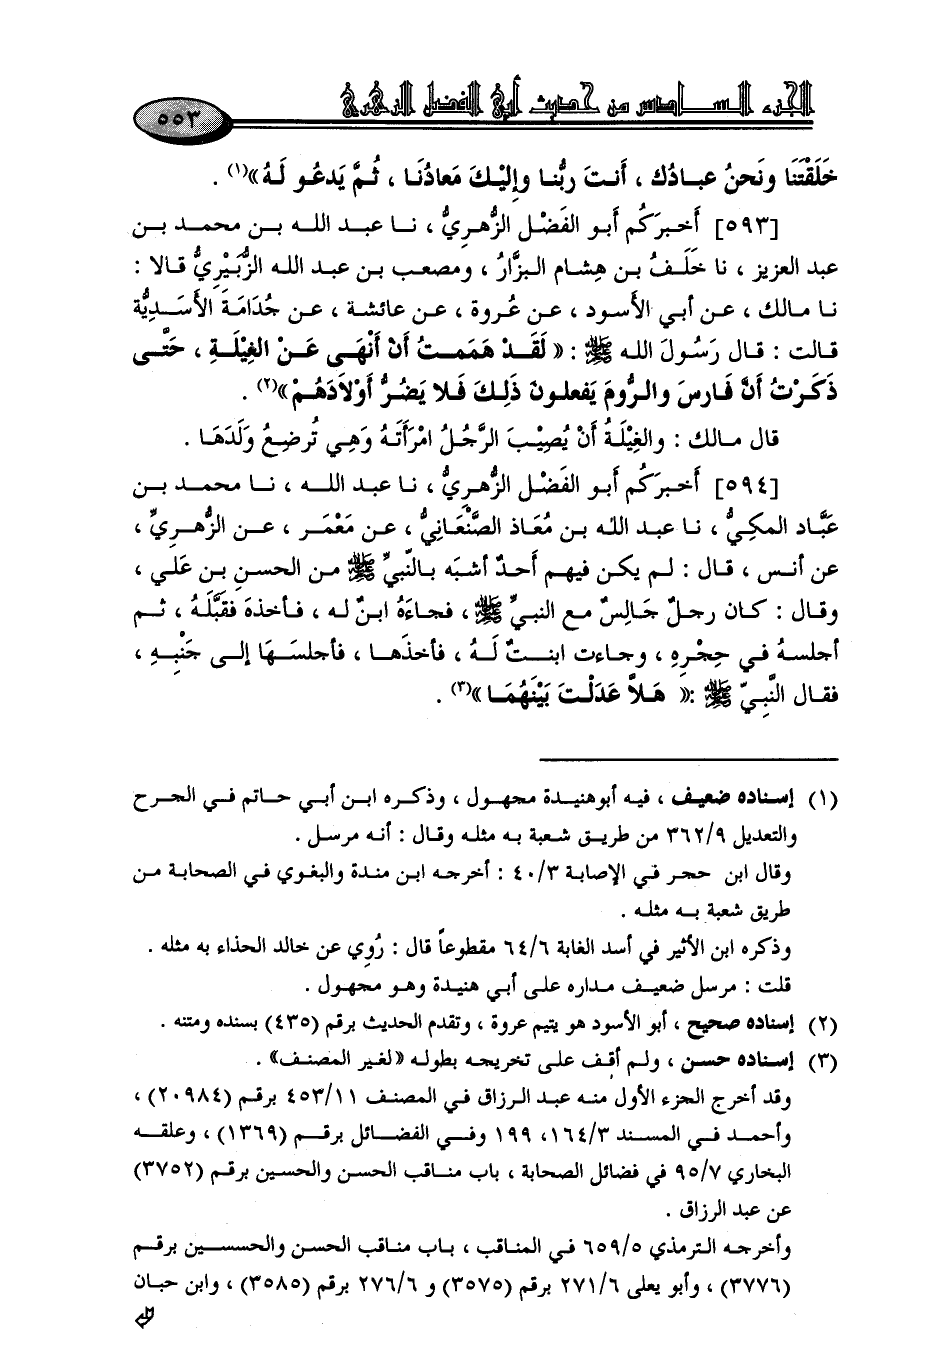 الجزء السادس من حديث أبي الفضل الزهري
٥٥٣
خَلَقْتَنَا ونَحنُ عبادُك ، أَنتَ ربُّنا وإليْكَ مَعادُنَا ، ثُمَّ يَدعُو لَهُ»(١) .
[٥٩٣] أخبرَكُم أبو الفَضْل الزُّهريُّ ، نا عبد الله بن محمد بن
عبد العزيز ، نا خَلَفُ بن هِشام البزَّارُ ، ومصعب بن عبد الله الزُّبَيْرِيُّ قالا :
نا مالك ، عن أبي الأَسود ، عن عُروة ، عن عائشة ، عن جُدَامَةَ الأَسَدِيَّة
قالت : قال رَسُولَ الله ﷺ : « لَقَدْ هَمَمتُ أَنْ أَنْهَى عَنْ الغِيلَةِ ، حَتَّى
ذَكَرْتُ أنَّ فَارسَ والرُّومَ يَفعلونَ ذَلِكَ فَلا يَضُرُّ أَوْلَادَهُمْ»(٢) .
قال مالك : والغِيْلَةُ أَنْ يُصِيْبَ الرَّجُلُ امْرَأَتَهُ وَهِي تُرضِعُ وَلَدَهَا .
[٥٩٤] أخبرَكُم أبو الفَضْل الزُّهريُّ ، نا عبد الله ، نا محمد بن
عبَّاد المكيُّ ، نا عبد الله بن مُعَاذ الصَّنْعَانِيُّ ، عن مَعْمَر ، عن الزُّهريِّ ،
عن أنس ، قال : لم يكن فيهم أحدٌ أشبَه بالنَّبيِّ ﷺ من الحسنِ بن عَلي ،
وقال : كان رجلٌ جَالِسٌ مع النبيِّ ﷺ ، فجاءَهُ ابنٌ له ، فأخذهَ فقبَّلَهُ ، ثم
أجلسهُ في حِجْرِهِ ، وجاءت ابنتٌ لَهُ ، فأخذَها ، فأجلسَهَا إلى جَنْبِهِ ،
فقال النَّبِيّ ﷺ :« هَلاَّ عَدَلْتَ بَيْنَهُمَا »(٣) .
(١) إسناده ضعيف ، فيه أبوهنيدة مجهول ، وذكره ابن أبي حاتم في الجرح
والتعديل ٣٦٢/٩ من طريق شعبة به مثله وقال : أنه مرسل .
وقال ابن حجر في الإصابة ٤٠/٣ : أخرجه ابن مندة والبغوي في الصحابة من
طريق شعبة به مثله .
وذكره ابن الأثير في أسد الغابة ٦٤/٦ مقطوعاً قال : رُوي عن خالد الحذاء به مثله .
قلت : مرسل ضعيف مداره على أبي هنيدة وهو مجهول .
(٢) إسناده صحيح ، أبو الأسود هو يتيم عروة ، وتقدم الحديث برقم (٤٣٥) بسنده ومتنه .
(٣) إسناده حسن ، ولم أقف على تخريجه بطوله «لغير المصنف» .
وقد أخرج الجزء الأول منه عبد الرزاق في المصنف ٤٥٣/١١ برقم (٢٠٩٨٤) ،
وأحمد في المسند ١٦٤/٣، ١٩٩ وفي الفضائل برقم (١٣٦٩) ، وعلقه
البخاري ٩٥/٧ في فضائل الصحابة ، باب مناقب الحسن والحسين برقم (٣٧٥٢)
عن عبد الرزاق .
وأخرجه الترمذي ٦٥٩/٥ في المناقب ، باب مناقب الحسن والحسسين برقم
(٣٧٧٦) ، وأبو يعلى ٢٧١/٦ برقم (٣٥٧٥) و ٢٧٦/٦ برقم (٣٥٨٥) ، وابن حبان